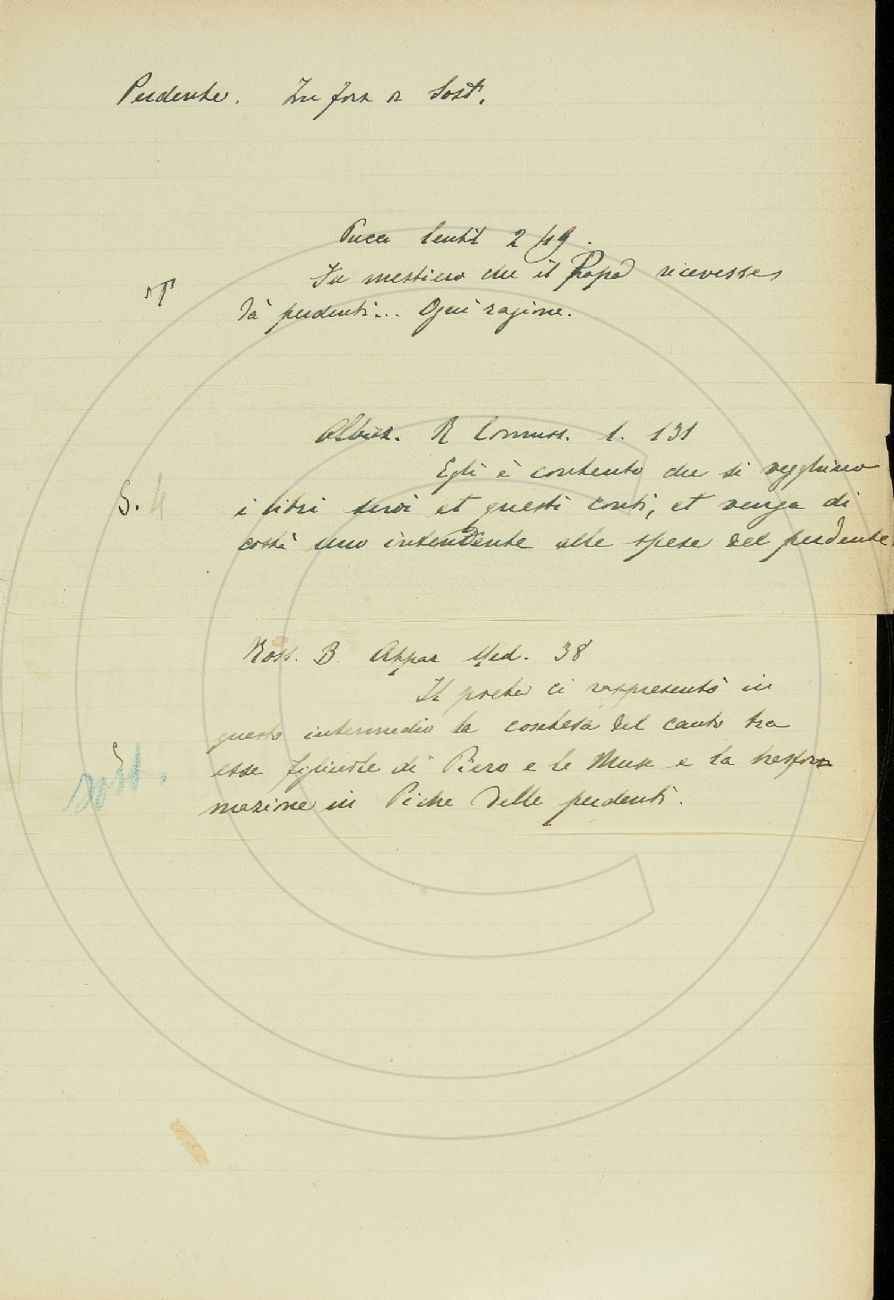 Perdente. In forz di Sost.
Pucci Centil 2/49.
T
Fu mestiero che il Papa ricevesse
Da' perdenti... Ogni ragione.
Albizz. R Commiss. 1. 131
S. 4
Egli è contento che si vegghino
i libri suoi et questi conti, et venga di
costà uno intendente alle spese del perdente.
Ross. B. Appar Med. 38
Il poeta ci rappresentò in
questo intermedio la contesa del canto tra
esse figliuole di Piero e le Muse e la trasfor
S
sost.
mazione in Piche delle perdenti.